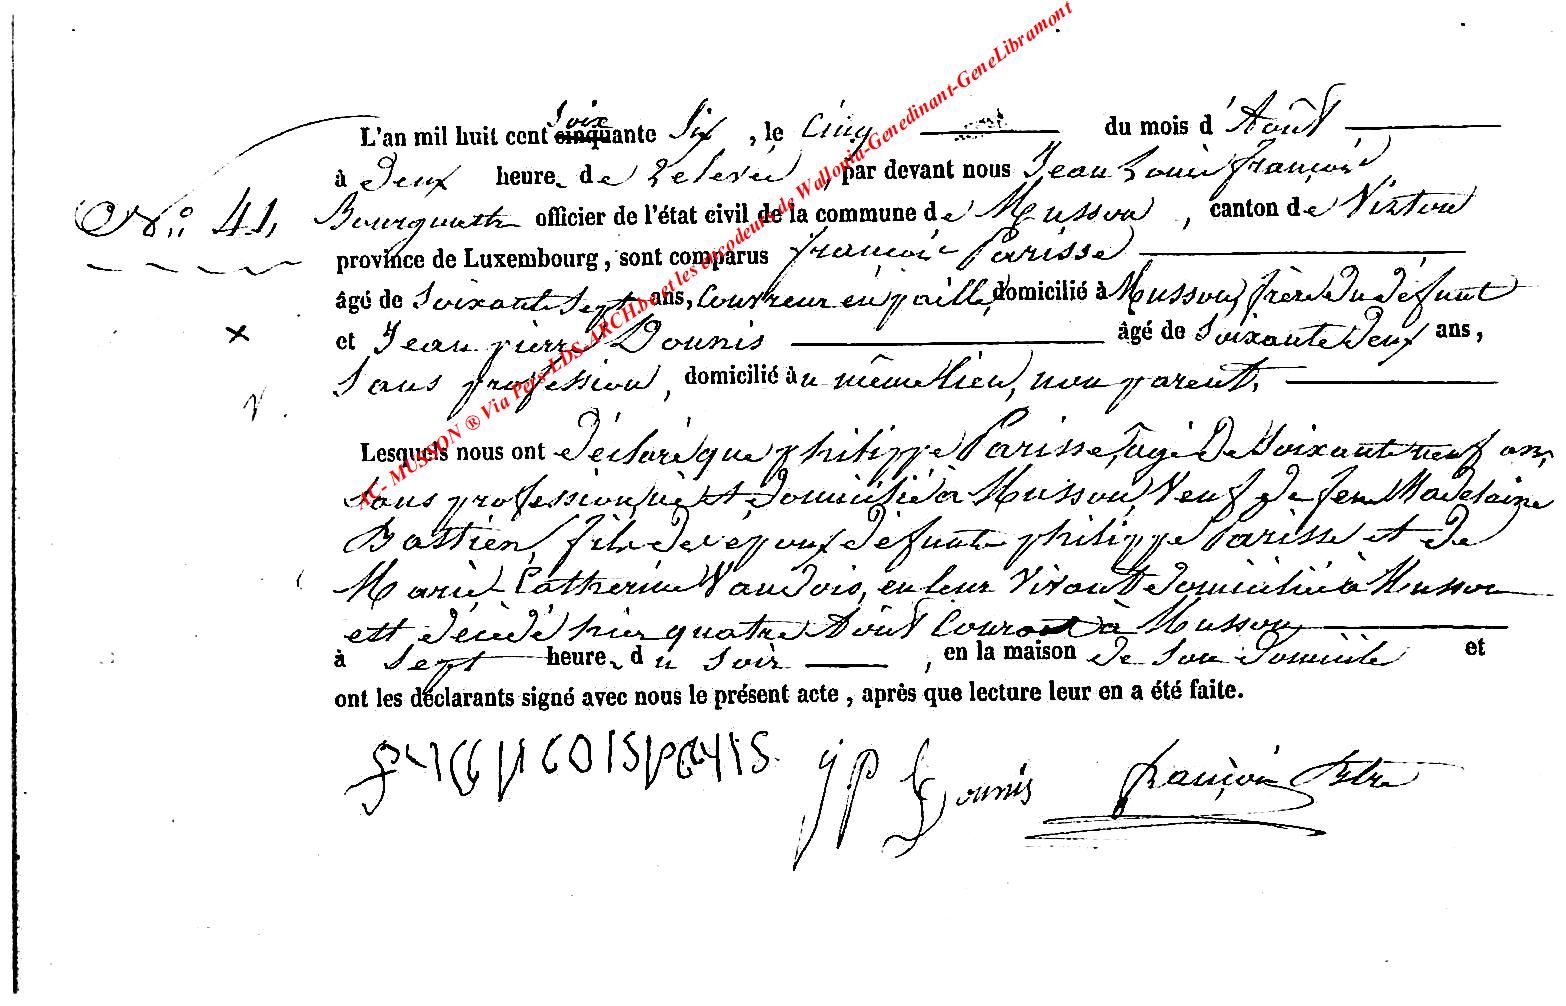 Soix
L'an mil huit cent cinquante Six , le Cinq du mois d'Août
à Deux heures de relevée , par devant nous Jean Louis françois
N.° 41, officier de l'état civil de la commune de Musson , canton de Virton
province de Luxembourg , sont comparus françois Parisse
âgé de Soixante Sept ans, Couvreur en paille, domicilié à Musson, frère du défunt
et Jean pierre Dounis âgé de Soixante Deux ans ,
Sans profession , domicilié au même lieu, non parent,
Lesquels nous ont Déclaré que philippe Parisse, âgé De Soixante neuf ans,
sans profession, né et domicilié à Musson, Veuf de feue Madelaine
Bastien, fils des époux défunts philippe Parisse et de
Marie Catherine Vaudois, en leur vivant domiciliés à Musson
est décédé hier quatre Août Courant à Musson
à Sept heures du soir , en la maison de son domicile et
ont les déclarants signé avec nous le présent acte , après que lecture leur en a été faite.
JP Dounis françois
AC- MUSSON ® Via Pers-LDS-ARCH.be et les encodeurs de Wallonia-Genedinant-GeneLibramont